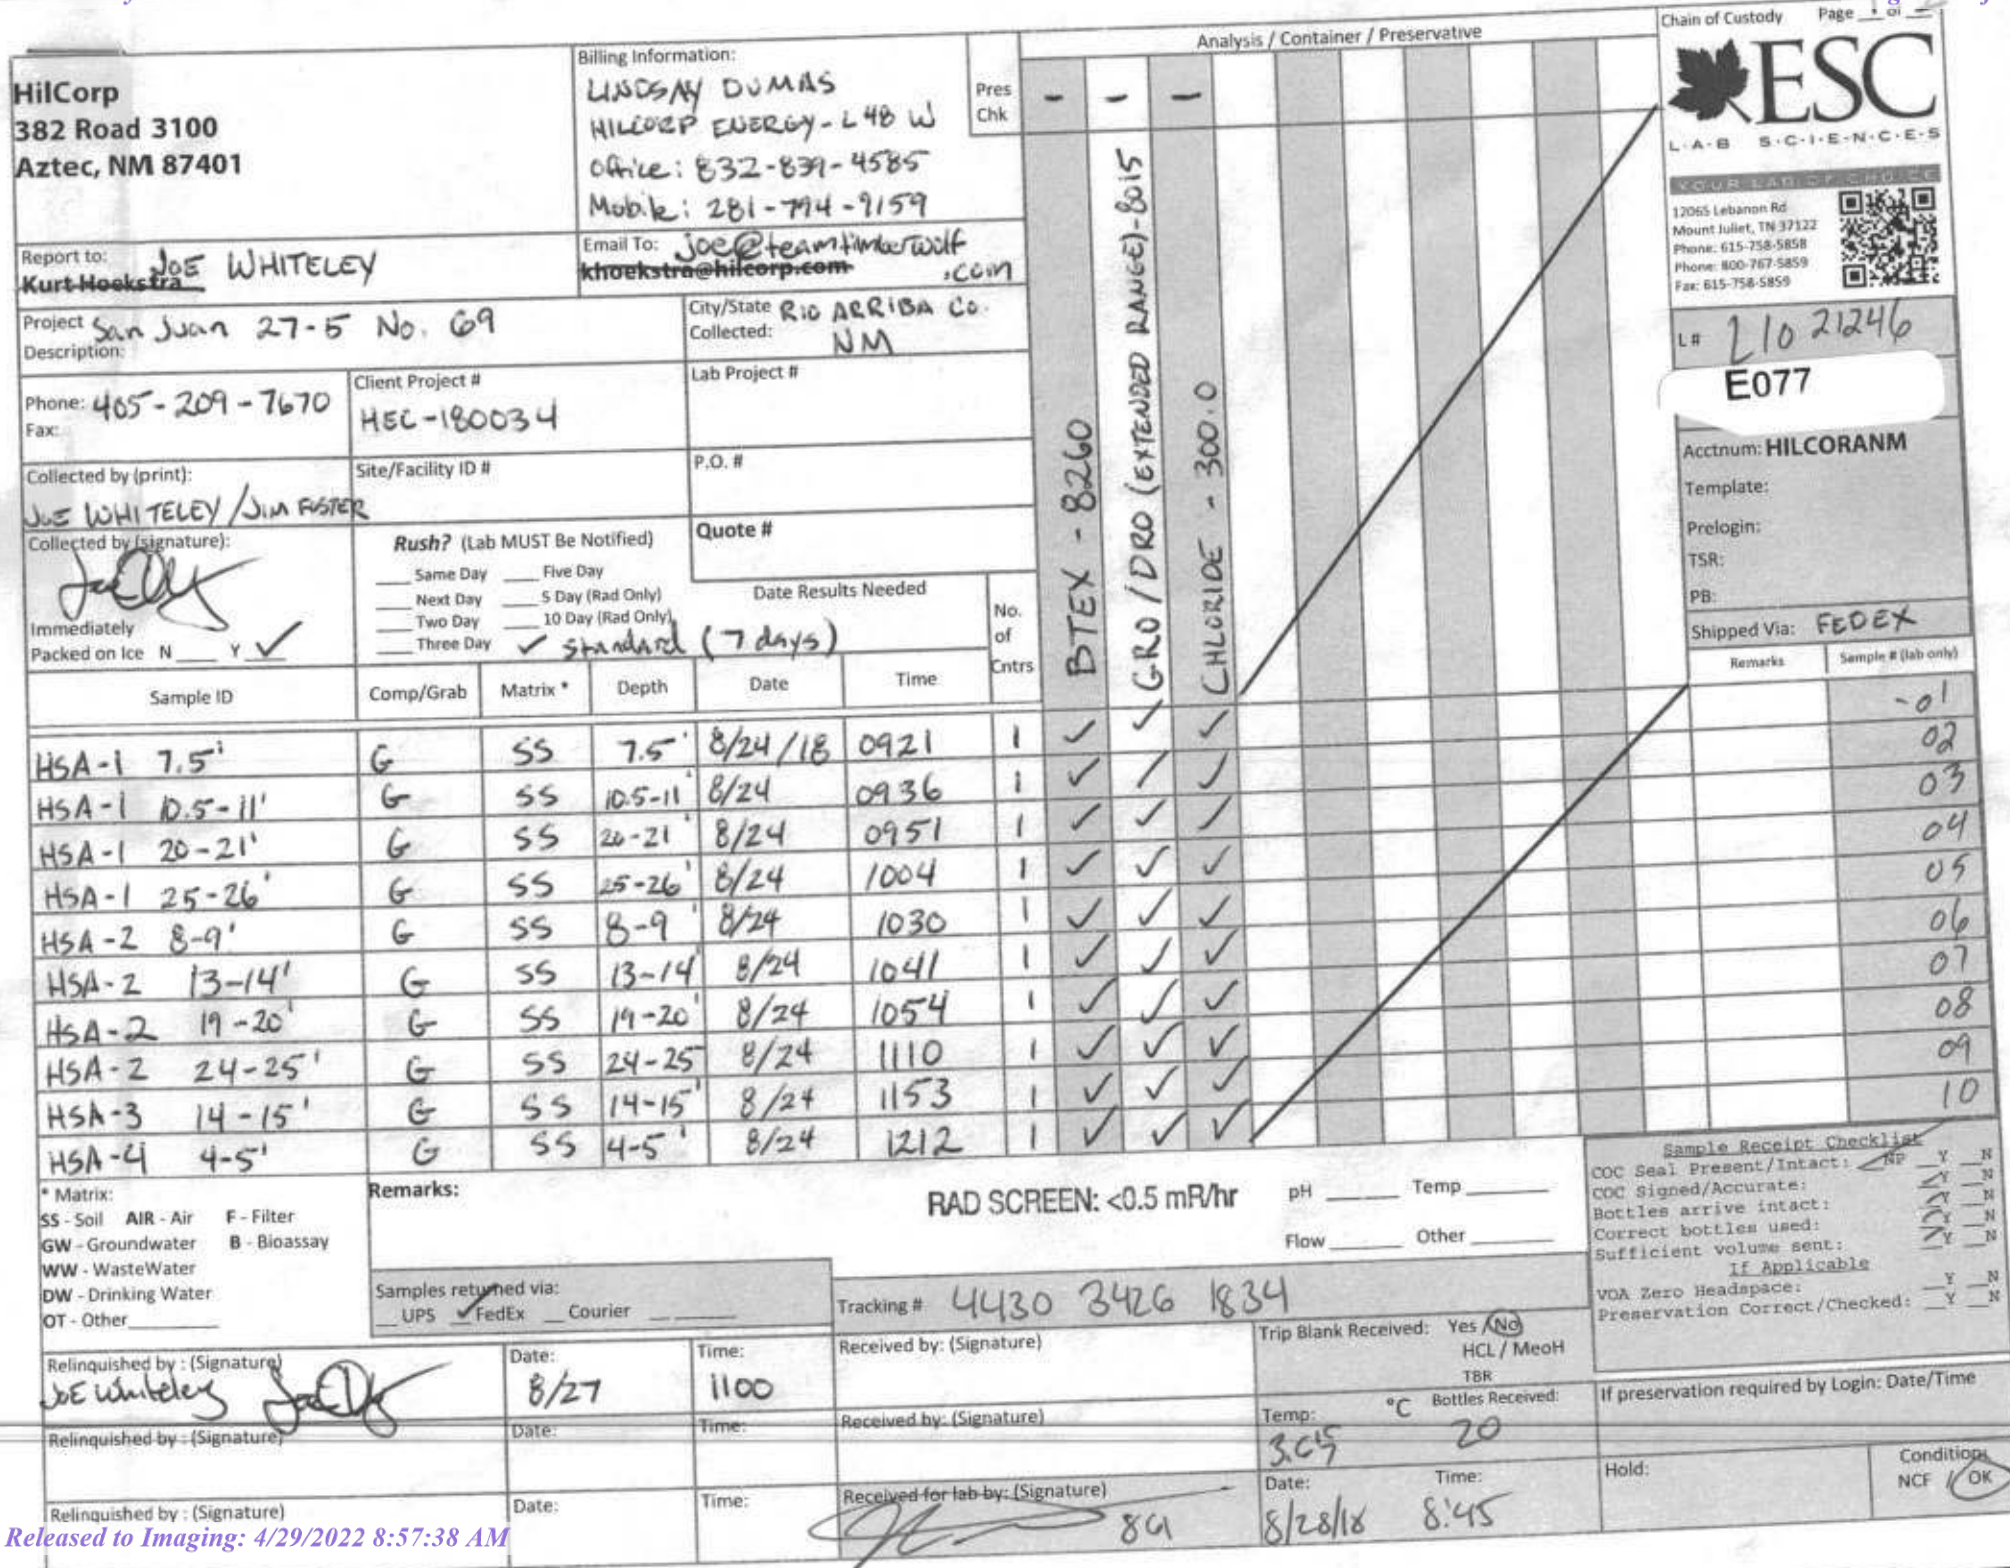 Chain of Custody Page
HilCorp
382 Road 3100
Aztec, NM 87401
Billing Information:
LINDSAY DUMAS
HILCORP ENERGY - L48 W
Office: 832-839-4585
Mobile: 281-794-9159
Pres
Chk
Analysis / Container / Preservative
- - -
ESC
L·A·B S·C·I·E·N·C·E·S
YOUR LAB OF CHOICE
12065 Lebanon Rd
Mount Juliet, TN 37122
Phone: 615-758-5858
Phone: 800-767-5859
Fax: 615-758-5859
Report to:
Kurt Hoekstra JOE WHITELEY
Email To: joe@teamtimberwolf.com
khoekstra@hilcorp.com
Project
Description: San Juan 27-5 No. 69
City/State
Collected: RIO ARRIBA CO. NM
L# L1021246
E077
Phone: 405-209-7670
Fax:
Client Project #
HEC-180034
Lab Project #
Collected by (print):
JOE WHITELEY / JIM FOSTER
Site/Facility ID #
P.O. #
Acctnum: HILCORANM
Template:
Prelogin:
TSR:
PB:
Shipped Via: FEDEX
Collected by (signature):
Immediately
Packed on Ice N ___ Y ✓
Rush? (Lab MUST Be Notified)
___ Same Day ___ Five Day
___ Next Day ___ 5 Day (Rad Only)
___ Two Day ___ 10 Day (Rad Only)
___ Three Day ✓ Standard (7 days)
Quote #
Date Results Needed
No.
of
Cntrs
BTEX - 8260
GRO / DRO (EXTENDED RANGE) - 8015
CHLORIDE - 300.0
Sample ID Comp/Grab Matrix * Depth Date Time Remarks Sample # (lab only)
HSA-1 7.5' G SS 7.5' 8/24/18 0921 1 ✓ ✓ ✓ -01
HSA-1 10.5-11' G SS 10.5-11' 8/24 0936 1 ✓ / ✓ 02
HSA-1 20-21' G SS 20-21' 8/24 0951 1 ✓ ✓ ✓ 03
HSA-1 25-26' G SS 25-26' 8/24 1004 1 ✓ ✓ ✓ 04
HSA-2 8-9' G SS 8-9' 8/24 1030 1 ✓ ✓ ✓ 05
HSA-2 13-14' G SS 13-14' 8/24 1041 1 ✓ ✓ ✓ 06
HSA-2 19-20' G SS 19-20' 8/24 1054 1 ✓ ✓ ✓ 07
HSA-2 24-25' G SS 24-25' 8/24 1110 1 ✓ ✓ ✓ 08
HSA-3 14-15' G SS 14-15' 8/24 1153 1 ✓ ✓ ✓ 09
HSA-4 4-5' G SS 4-5' 8/24 1212 1 ✓ ✓ ✓ 10
* Matrix:
SS - Soil AIR - Air F - Filter
GW - Groundwater B - Bioassay
WW - WasteWater
DW - Drinking Water
OT - Other
Remarks:
RAD SCREEN: <0.5 mR/hr
pH ___ Temp ___
Flow ___ Other ___
Sample Receipt Checklist
COC Seal Present/Intact: NP Y N
COC Signed/Accurate: Y N
Bottles arrive intact: Y N
Correct bottles used: Y N
Sufficient volume sent: Y N
If Applicable
VOA Zero Headspace: Y N
Preservation Correct/Checked: Y N
Samples returned via:
__ UPS ✓ FedEx __ Courier
Tracking # 4430 3426 1834
Relinquished by : (Signature)
Joe Whiteley
Date:
8/27
Time:
1100
Received by: (Signature)
Trip Blank Received: Yes / No
HCL / MeoH
TBR
Relinquished by : (Signature)
Date:
Time:
Received by: (Signature)
Temp: °C
Bottles Received:
20
If preservation required by Login: Date/Time
Relinquished by : (Signature)
Date:
Time:
Received for lab by: (Signature)
Date:
8/28/18
Time:
8:45
Hold:
Condition:
NCF / OK
Released to Imaging: 4/29/2022 8:57:38 AM